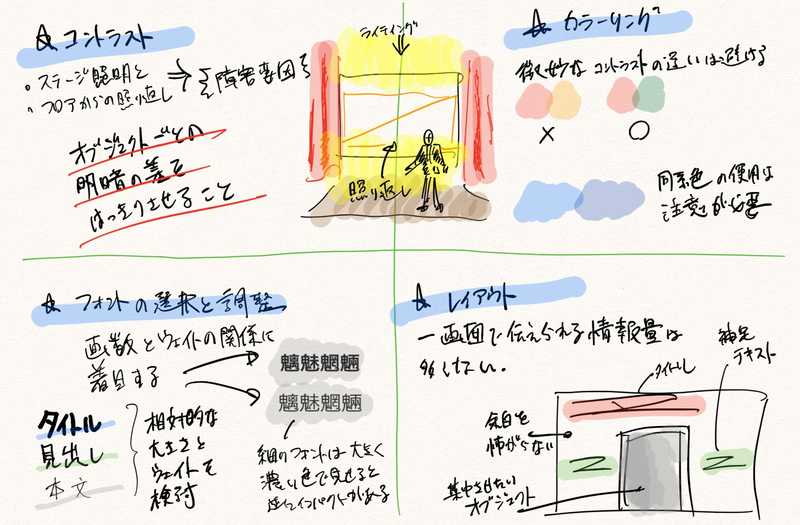 コントラスト
・ステージ照明と
・フロアからの照り返し
⇒ 障害要因
オブジェクトごとの
明暗の差を
はっきりさせること
ライティング
照り返し
カラーリング
微妙なコントラストの違いは避ける
× ○
同系色の使用は
注意が必要
フォントの選択と調整
画数とウェイトの関係に
着目する
魑魅魍魎
魑魅魍魎
タイトル
見出し
本文
相対的な
大きさと
ウェイトを
検討
細めのフォントは大きく
濃い色で見せると
インパクトがある
レイアウト
一画面で伝えられる情報量は
多くない.
タイトル
補足
テキスト
余白を
怖がらない
集中させたい
オブジェクト